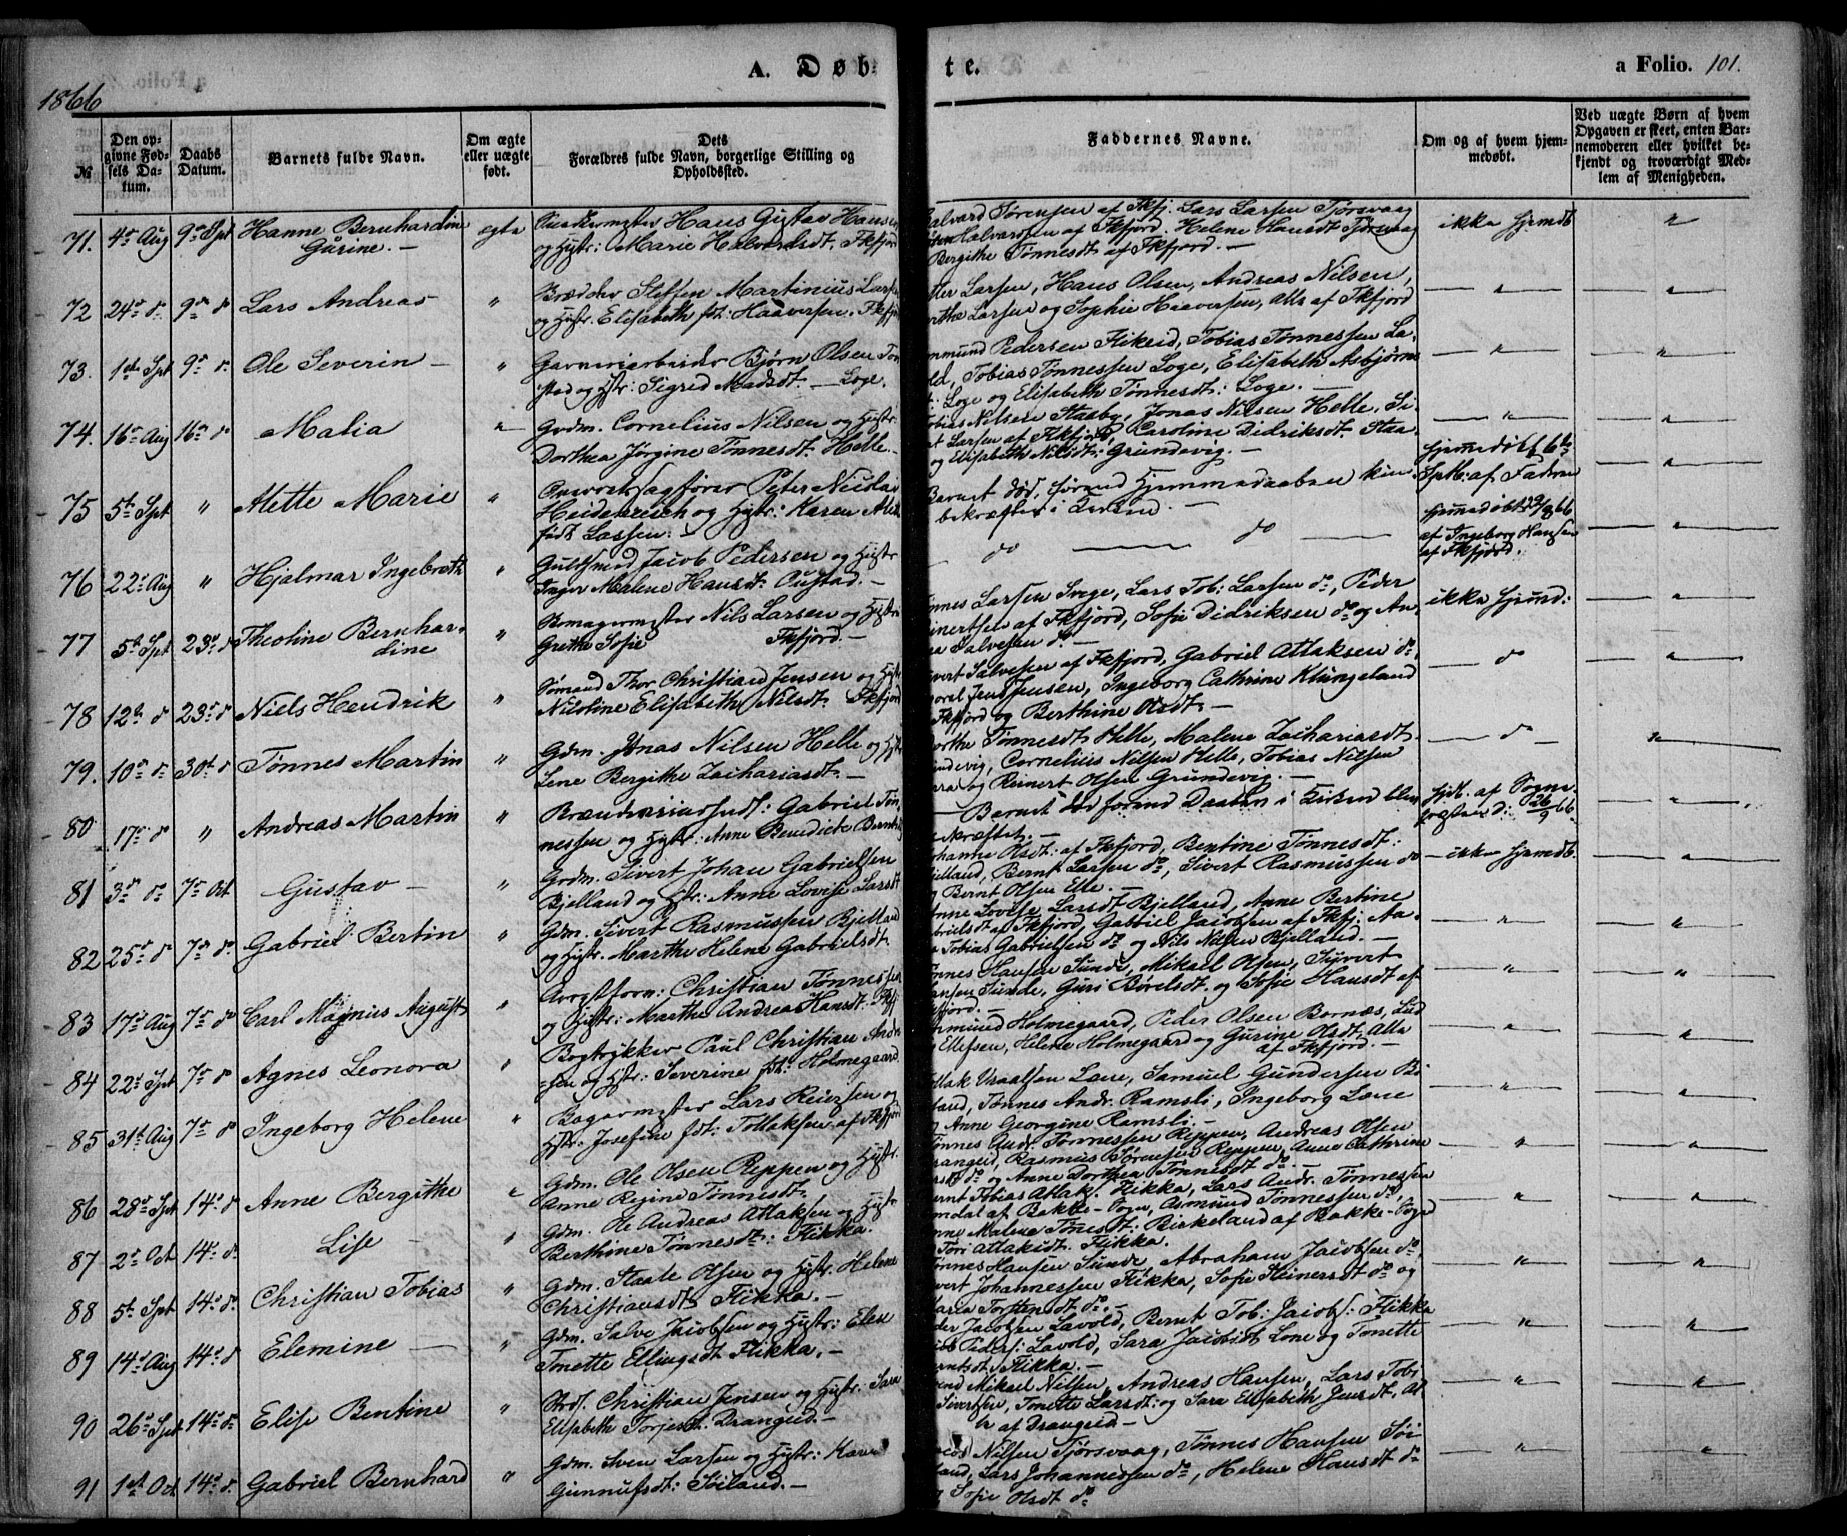 1866
A. Døb
te.
a Folio. 101.
№
Den op-
givne Fød-
sels Da-
tum.
Daabs
Datum.
Barnets fulde Navn.
Om ægte
eller uægte
født.
Dets
Forældres fulde Navn, borgerlige Stilling og
Opholdssted.
Faddernes Navne.
Om og af hvem hjem-
medøbt.
Ved uægte Børn af hvem
Opgaven er skeet, enten Bar-
nemoderen eller hvilket be-
kjendt og troværdigt Med-
lem af Menigheden.
71. 4de Aug 9de Spt Hanne Bernhardin
Gurine.
ægte
Hans Gustav Hansen
og Hstr: Marie Halvordsdt. Fkfjord
Halvard Sørensen af Fkfj. Lars Larsen Tjørsvaag
Halvorsen af Fkfjord. Helene Hansdt Tjørsvaag
Bergithe Tønnesdt af Fkfjord.
ikke hjemdb.
72 24de do 9de do Lars Andreas
Steffen Martinius Larsen
og Hstr. Elisabeth fdt: Haaversen. Fkfj
Larsen, Hans Olsen, Andreas Nilsen,
Larsen og Sophie Haaversen, alle af Fkfjord
73. 1ste Spt 9de do Ole Severin
Garveriarbeider Bjørn Olsen
stad og Hstr: Sigrid Madsdt. Loge.
Pedersen Flikeid, Tobias Tønnessen La-
Tobias Tønnessen Loge, Elisabeth Asbjørns
Loge og Elisabeth Tønnesdt: Loge.
74. 16de Aug 16de do Malia
Grdm. Cornelius Nilsen og Hstr
Dorthea Jørgine Tønnesdt. Helle.
Tobias Nilsen Staaby, Jonas Nilsen Helle, Si-
Larsen af Fkfjord, Caroline Didriksdt. Staa
og Elisabeth Nilsdt: Grundevig.
75 5te Spt " Mette Marie
Overretssagfører Peter Nicolai
Heidenreich og Hstr: Karen
født Lassen.
Barnet død, førend Hjemmedaaben kun
bekræftes i Kirken.
hjemmedøbt 6te
Sptb: af Faderen
76 22de Aug " Hjalmar Ingebreth
Guldsmed Jacob Pedersen og Hstr
Inger Malene Hansdt: Oustad.
do do
hjemmedøbt
af Ingeborg Hansen
af Fkfjord.
77 5te Spt 23de do Theoline Bernhar-
dine
Nils Larsen og Hstr
Grethe Sofie Fkfjord.
Tønnes Larsen Svege, Lars Tob: Larsen do, Peder
Reinertsen af Fkfjord, Sofie Didriksen do og An-
na Salvesen do
ikke hjemd:
78 12te do 23de do Niels Hendrik
Sømand Thor Christian Jensen og Hstr
Nicoline Elisabeth Nilsdt. Fkfjord
Salvesen af Fkfjord, Gabriel Atlaksen do,
Jensen, Ingeborg Cathrine Klungeland
Fkfjord og Berthine Olsdt.
do
79. 10de do 30te do Tønnes Martin
Gdm. Jonas Nilsen Helle og Hstr
Lene Bergithe Zachariasdt.
Tønnesdt Helle, Malene Zachariasdt.
Grundevig, Cornelius Nilsen Helle, Tobias Nilsen
og Reinert Olsen Grundevig.
do
80 17de do " Andreas Martin
Gabriel Tøn-
nessen og Hstr: Anne Benedicte
Barnet død førend Daaben i Kirken blev
bekræftet.
hjdb. af Sogne-
26/9 66.
81 3de do 7de Oct Gustav
Grdm. Sivert Johan Gabrielsen
Bjelland og Hstr: Anne Lovise Larsdt
Johanne Olsdt: af Fkfjord, Bertine Tønnesdt:
Bjelland, Bernt Larsen do, Sivert Rasmussen do
og Bernt Olsen Elle.
ikke hjemdb.
82 25de do 7de do Gabriel Bertin
Gdm. Sivert Rasmussen Bjelland
og Hstr. Marthe Helene Gabrielsdt
Anne Lovise Larsdt Bjelland, Anne Bertine
Gabrielsdt af Fkfjord, Gabriel Jacobsen af Fkfj: Aa-
Tobias Gabrielsen do og Nils Nilsen Bjelland.
83 17de Aug 7de do Carl Magnus August
Christian Tønnessen
og Hstr: Marthe Andrea Hansdt: Fkfj
Tønnes Hansen Sunde, Mikael Olsen, Syvert
Hansen Sunde, Guri Børelsdt. og Sofie Hansdt af
Fkfjord.
84 22de Spt 7de do Agnes Leonora
Bogtrykker Paul Christian
sen og Hstr: Severine fdt: Holmegaard
Holmegaard, Peder Olsen Bornæs, Lud
Ellefsen, Helene Holmegaard og Gurine Olsdt. Alle
af Fkfjord.
85 31te Aug 7de do Ingeborg Helene
Bagermester Lars Reiersen og
Hstr. Josefine fdt: Tollaksen, af Fkfjord
Tollak Vraalsen Læne, Samuel Gundersen Bi
land, Tønnes Andr. Ramsli, Ingeborg Læne
og Anne Georgine Ramsli.
86 28de Spt 14de do Anne Bergithe
Gdm. Ole Olsen Reppen og Hstr.
Anne Regine Tønnesdt.
Tønnes Tønnessen Reppen, Andreas Olsen
Drangeid, Rasmus Sørensen Reppen, Anne Cathrine
do og Anne Dorthea Tønnesdt do.
87 2de Oct 14de do Lise
Gdm. Ole Andreas Atlaksen og Hstr
Berthine Tønnesdt: Flikka.
Bernt Tobias Atlak. Flikka, Lars Andr. Tønnessen
af Bakke-Sogn, Asmund Tønnessen do,
Malene Tønnesdt: Birkeland af Bakke-Sogn
Tori Atlaksdt. Flikka.
88 5te Spt 14de do Christian Tobias
Gdm. Staale Olsen og Hstr. Helene
Christiansdt: Flikka.
Tønnes Hansen Sunde, Abraham Jacobsen do,
Johannessen Flikka, Sofie Steinersdt do og
Maria Torstensdt do.
89 14de Aug 14de do Elemine
Gdm. Salve Jacobsen og Hstr: Elen
Tonette Ellingsdt Flikka.
Jacobsen Lavold, Bernt Tob: Jacobs: Flikka
Peders: Lavold, Sara Jacobsdt Lone og Tonette
Flikka.
90 26de Spt 14de do Elise Bentine
Christian Jensen og Hstr. Sara
Elisabeth Torjesdt. Drangeid.
Mikael Nilsen, Andreas Hansen, Lars Tobi-
Sivertsen, Tonette Larsdt: og Sara Elisabeth Jensdt. Al
le af Drangeid
91 1ste Oct 14de do Gabriel Bernhard
Gdm. Sven Larsen og Hstr: Karen
Gunnufsdt: Søiland.
Nilsen Tjørsvaag, Tønnes Hansen Søi
land, Lars Johannessen do, Helene Hansdt do
og Sofie Olsdt do